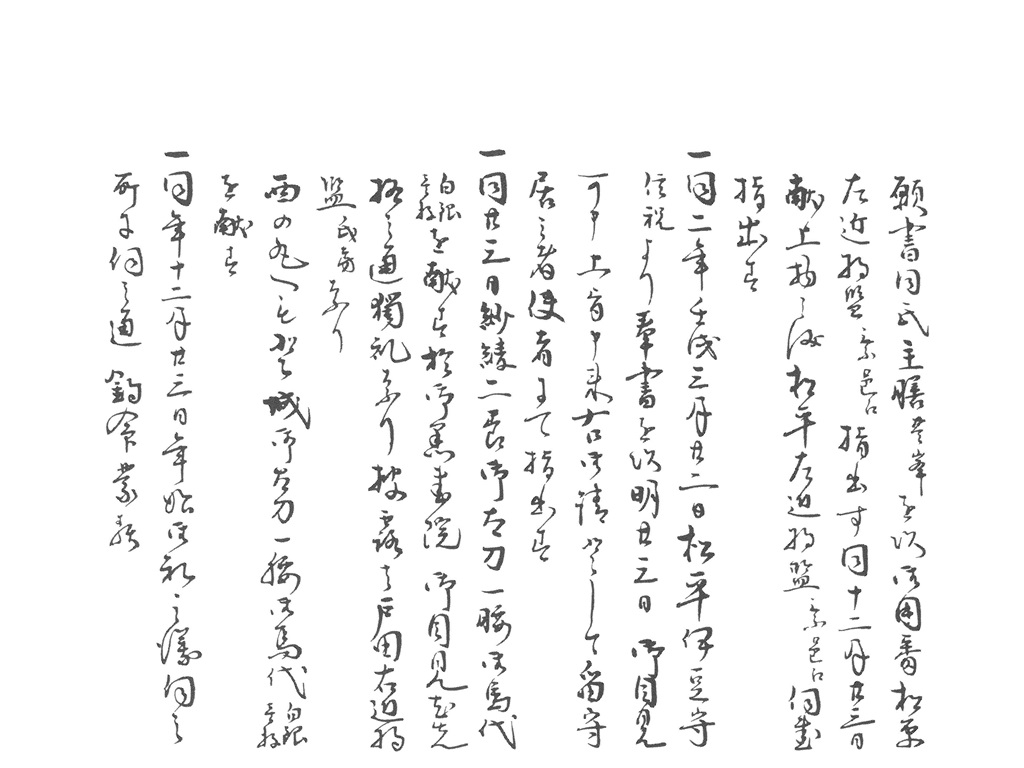 願書同氏主膳孝峯を以御用番松平
左近将監乗邑江指出す同十二月廿三日
献上物之儀松平左近将監乗邑江伺書
指出す
一同二年壬戌三月廿二日松平伊豆守
信祝より奉書を以明廿三日御目見
可申上旨申来右御請として留守
居之者使者にて指出す
一同廿三日紗綾二巻御太刀一腰御馬代
白銀三枚を献す於御黒書院御目見先
格之通独礼なり披露者戸田右近将
監氏房なり
西の丸へも登城御太刀一腰御馬代白銀三枚
を献す
一同年十二月廿三日年始御礼之儀伺之
所に伺之通